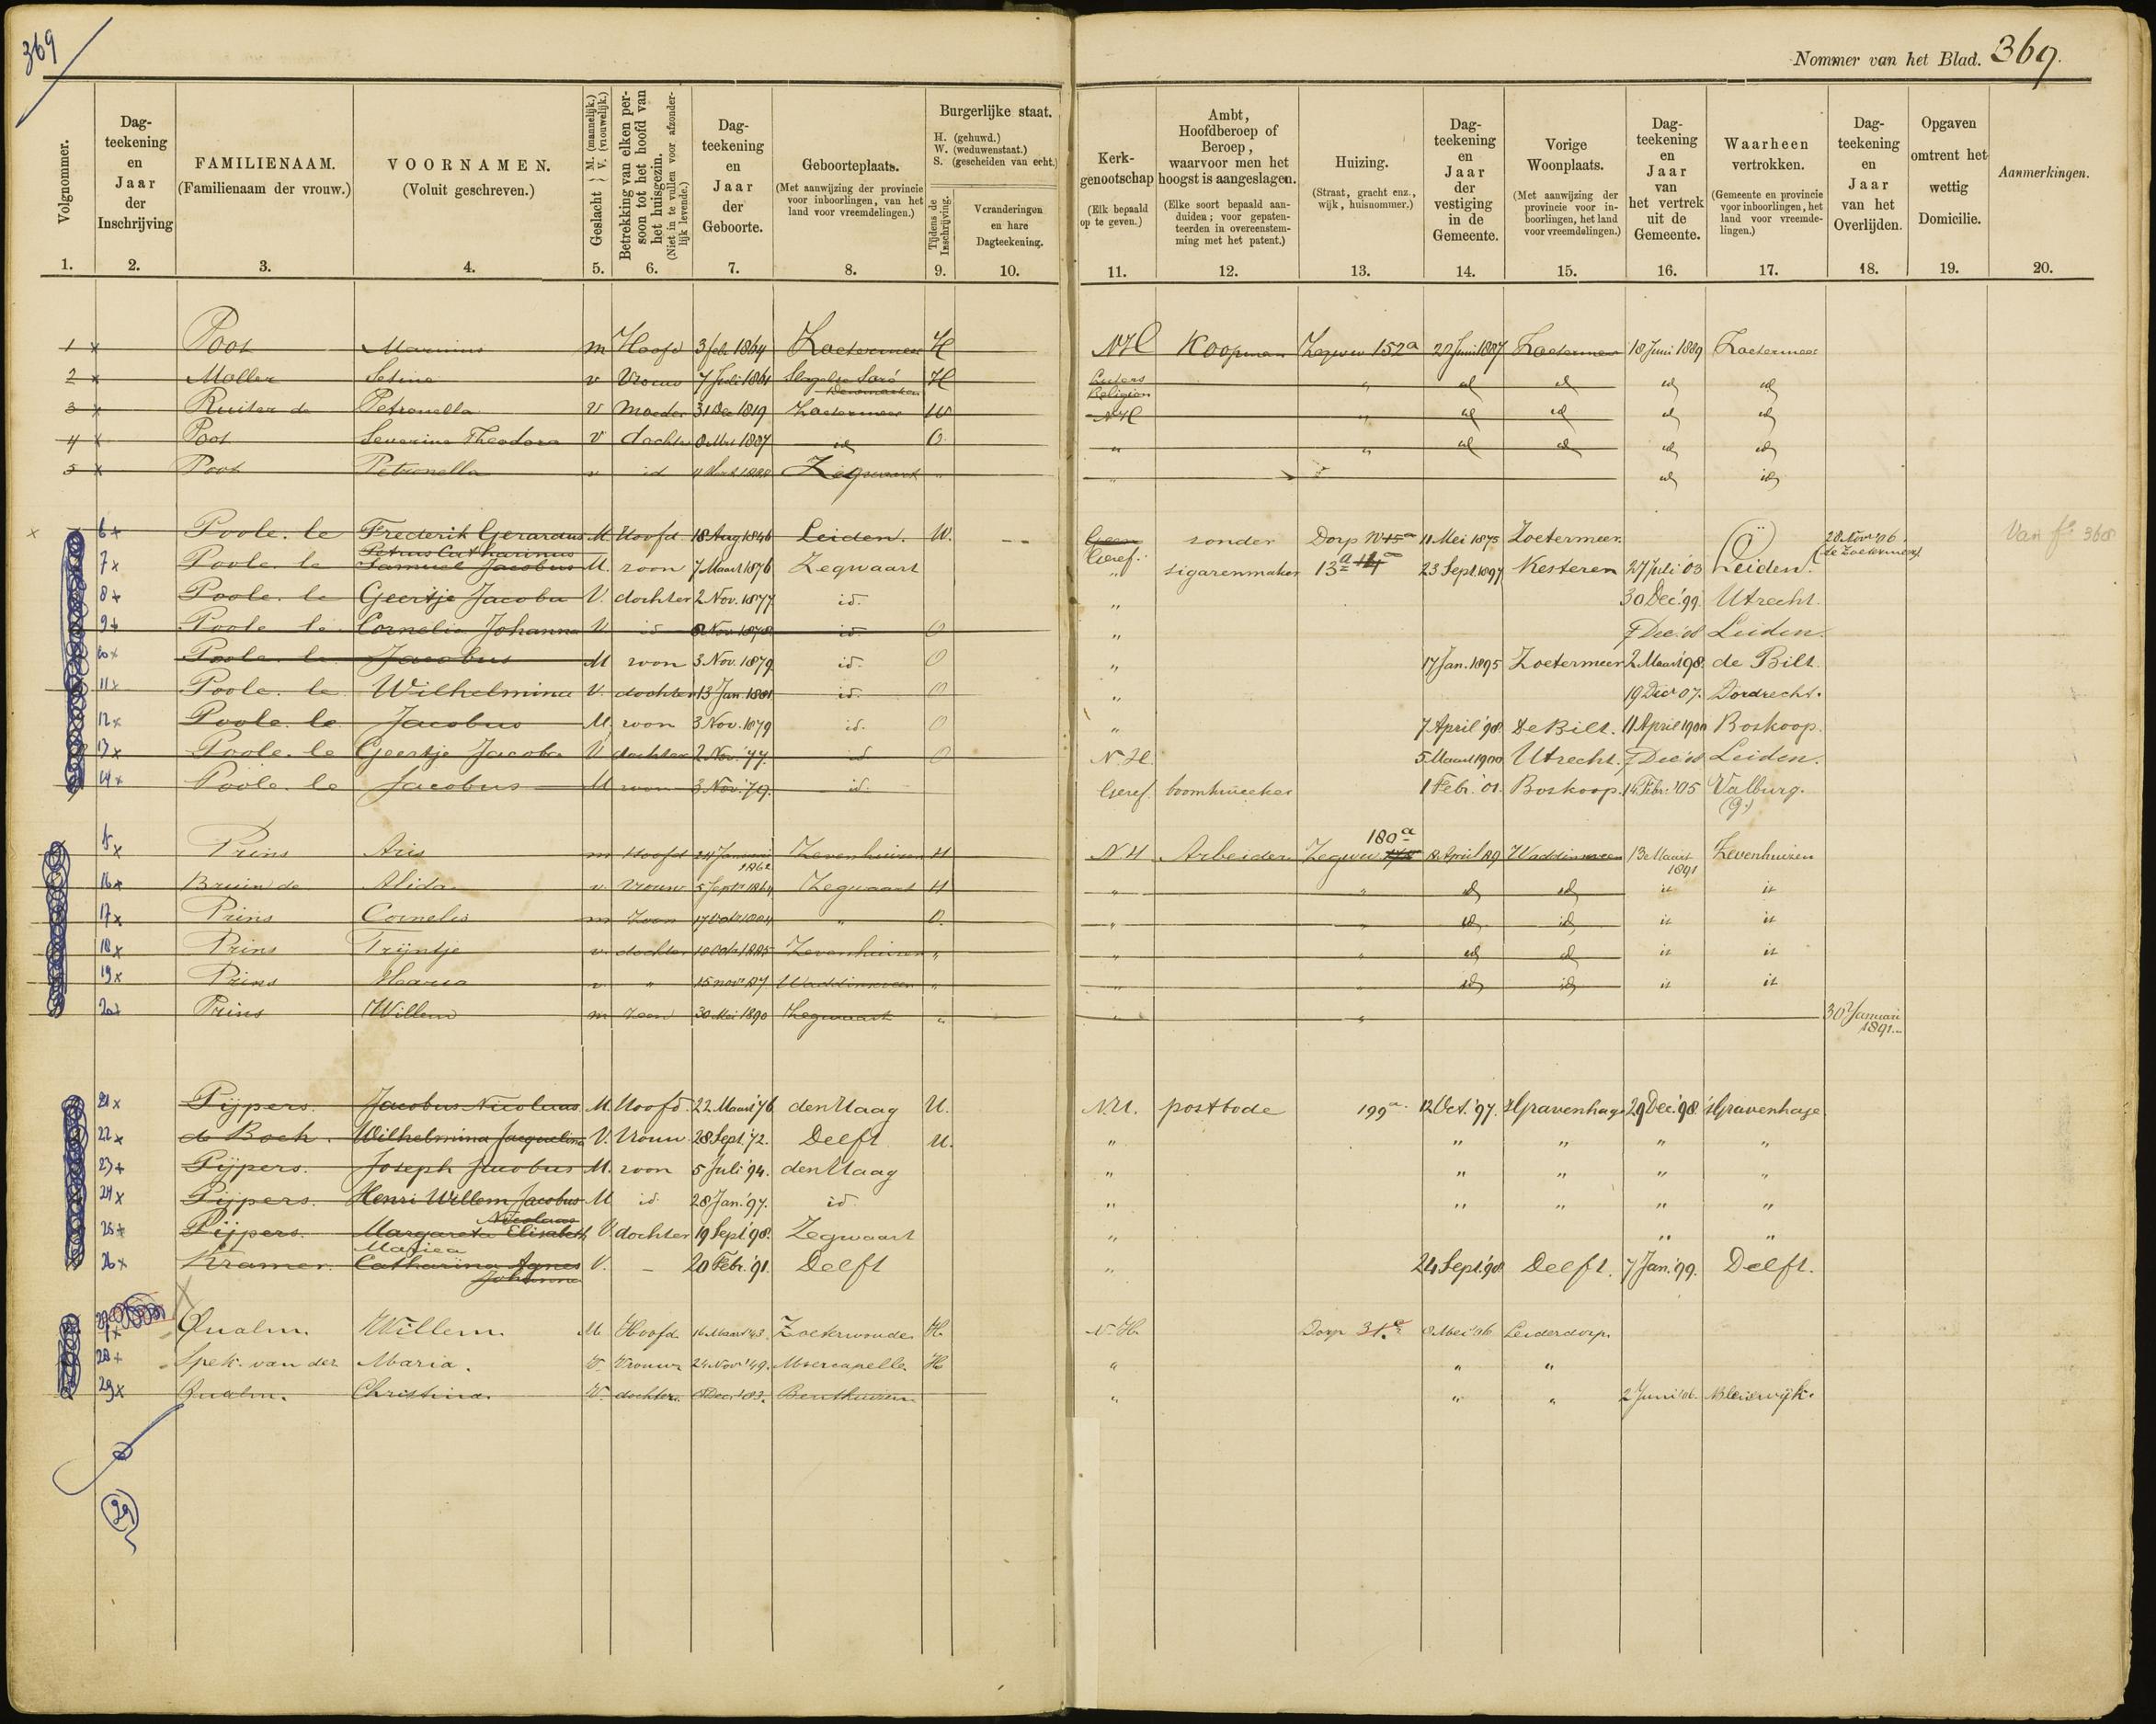 369
Nommer van het Blad. 369.
Volgnommer.
1.
Dag-
teekening
en
Jaar
der
Inschrijving
2.
FAMILIENAAM.
(Familienaam der vrouw.)
3.
VOORNAMEN.
(Voluit geschreven.)
4.
Geslacht M. (mannelijk.) V. (vrouwelijk.)
5.
Betrekking van elken per-
soon tot het hoofd van
het huisgezin.
(Niet in te vullen voor afzonder-
lijk levende.)
6.
Dag-
teekening
en
Jaar
der
Geboorte.
7.
Geboorteplaats.
(Met aanwijzing der provincie
voor inboorlingen, van het
land voor vreemdelingen.)
8.
Burgerlijke staat.
H. (gehuwd.)
W. (weduwenstaat.)
S. (gescheiden van echt.)
Tijdens de
Inschrijving.
9.
Veranderingen
en hare
Dagteekening.
10.
Kerk-
genootschap
(Elk bepaald
op te geven.)
11.
Ambt,
Hoofdberoep of
Beroep,
waarvoor men het
hoogst is aangeslagen.
(Elke soort bepaald aan-
duiden; voor gepaten-
teerden in overeenstem-
ming met het patent.)
12.
Huizing.
(Straat, gracht enz.,
wijk, huisnommer.)
13.
Dag-
teekening
en
Jaar
der
vestiging
in de
Gemeente.
14.
Vorige
Woonplaats.
(Met aanwijzing der
provincie voor in-
boorlingen, het land
voor vreemdelingen.)
15.
Dag-
teekening
en
Jaar
van
het vertrek
uit de
Gemeente.
16.
Waarheen
vertrokken.
(Gemeente en provincie
voor inboorlingen, het
land voor vreemde-
lingen.)
17.
Dag-
teekening
en
Jaar
van het
Overlijden.
18.
Opgaven
omtrent het
wettig
Domicilie.
19.
Aanmerkingen.
20.
1 x Poot Marinus m Hoofd 3 feb 1864 Zoetermeer H NH Koopman Zegwu 152a 20 Juni 1887 Zoetermeer 18 Juni 1889 Zoetermeer
2 x Moller Setine v Vrouw 7 Juli 1861 Denemarken H Luters Religion " id id id id
3 x Ruiter de Petronella v Moeder 31 Dec 1819 Zoetermeer W NH " id id id id
4 x Poot Severine Theodora v dochter 1887 id O " " id id id id
5 x Poot Petronella v id 1888 Zegwaart " " id id
6 x Poole. le Frederik Gerardus M. Hoofd 18 Aug 1846 Leiden. W. Geen zonder Dorp W15a 11 Mei 1875 Zoetermeer. 28 Nov '06 (te Zoetermeer) Van fo 368
Petrus Catharinus
7 x Poole. le Samuel Jacobus M. zoon 7 Maart 1876 Zegwaart Geref. " sigarenmaker 13a 14a 23 Sept. 1897 Kesteren 27 Juli '03 Leiden.
8 x Poole. le Geertje Jacoba V. dochter 2 Nov. 1877 id. " 30 Dec. '99. Utrecht.
9 x Poole le Cornelia Johanna V. id 8 Nov 1878 id. O " 7 Dec. '08 Leiden.
10 x Poole. le Jacobus M zoon 3 Nov. 1879 id. O " 17 Jan. 1895 Zoetermeer 2 Maart '98. de Bilt.
11 x Poole. le Wilhelmina V. dochter 13 Jan 1881 id. O " 19 Dec 07. Dordrecht.
12 x Poole. le Jacobus M. zoon 3 Nov. 1879 id. O " 7 April '98. De Bilt. 11 April 1900 Boskoop.
13 x Poole. le Geertje Jacoba V dochter 2 Nov. '77. id. O N.H. 5 Maart 1900 Utrecht. 7 Dec '08 Leiden.
14 x Poole. le Jacobus M zoon 3 Nov. '79. id. Geref. boomkweeker 1 Febr. '01. Boskoop. 14 Febr. '05 Valburg.
(G.)
180a
15 x Prins Aris m Hoofd 24 Januari 1862 Zevenhuizen H NH Arbeider Zegwu April 89 Waddinxveen 13 Maart 1891 Zevenhuizen
16 x Bruin de Alida v Vrouw 5 Sept 1864 Zegwaart H " " id id it it
17 x Prins Cornelis m Zoon 17 Oct 1884 " O. " " id id it it
18 x Prins Trijntje v. dochter 10 Oct 1885 Zevenhuizen " " " id id it it
19 x Prins Maria v " 15 nov 87 Waddinxveen " " " id id it it
20 x Prins Willem m Zoon 30 Mei 1890 Zegwaart " " " 30 Januari
1891
21 x Pijpers. Jacobus Nicolaas M. Hoofd. 22 Maart '76 den Haag H. N.H. postbode 199a. 12 Oct. '97. 'sGravenhage 29 Dec. '98. 'sGravenhage.
22 x de Bock. Wilhelmina Jacquelina V. Vrouw. 28 Sept. '72. Delft H. " " " " "
23 x Pijpers. Joseph Jacobus M. zoon 5 Juli '94. den Haag " " " " "
24 x Pijpers. Henri Willem Jacobus M id. 28 Jan. '97. id. " " " " "
Nicolaas
25 x Pijpers. Margareta Elisabeth V. dochter 19 Sept '98. Zegwaart " " "
Maria
26 x Kramer. Catharina Agnes V. – 20 Febr. '91. Delft " 24 Sept. '98. Delft. 7 Jan. '99. Delft.
Johanna
x Qualm. Willem. M. Hoofd. 16 Maart '43. Zoeterwoude. H. N.H. Dorp 31.a 8 Mei '06 Leiderdorp.
28 x Spek. van der Maria. V. Vrouw. 24 Nov. '49. Moercapelle. H " " "
29 x Qualm. Christina. V. dochter. Dec. '83. Benthuizen. " " " 2 Juni '06. Bleiswijk.
29